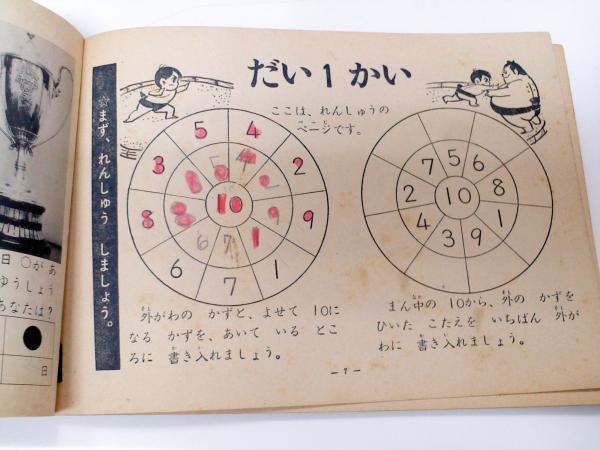 だい1かい
☆まず、れんしゅう しましょう。
ここは、れんしゅうの
ページです。
5
4
3
2
8
9
6
7
1
10
6
7
1
5
6
7
8
2
10
1
4
3
9
外がわの かずと、よせて 10に
なる かずを、あいて いる とこ
ろに 書き入れましょう。
まん中の 10から、外の かずを
ひいた こたえを いちばん 外が
わに 書き入れましょう。
—7—
日 ○が あ
ゆうしょう
あなたは?
日